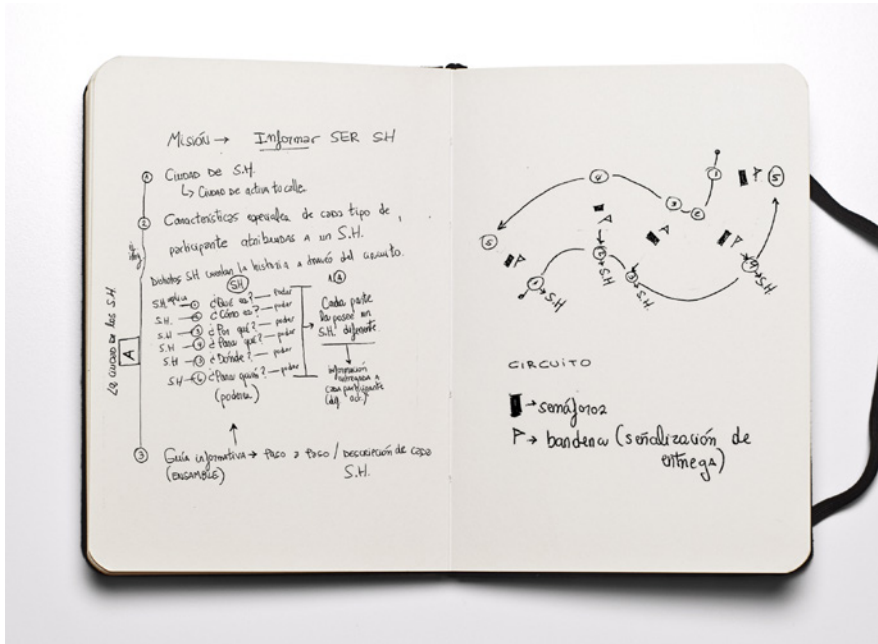 Misión → Informar SER S.H
1 Ciudad de S.H.
↳ Ciudad de activa tu calle.
2 Características especiales de cada tipo de
participante atribuidas a un S.H.
Dichos SH cuentan la historia a través del circuito.
SH
1(A)
S.H explica → 1 ¿Qué es? — poder
S.H. → 2 ¿Cómo es? — poder
S.H → 3 ¿Por qué? — poder
S.H → 4 ¿Para qué? — poder
S.H → 5 ¿Dónde? — poder
S.H → 6 ¿Para quién? — poder
(poderes)
Cada parte
la posee un
S.H. diferente.
información
entregada a
cada participante
3 Guía informativa → Paso a Paso / Descripción de cada
(ENSAMBLE) S.H.
La ciudad de los S.H.
A
1
5
4
3
2
5
1 → S.H
2 → S.H
3 → S.H.
4 → S.H
CIRCUITO
→ semáforoz
→ bandera (señalización de
entrega)